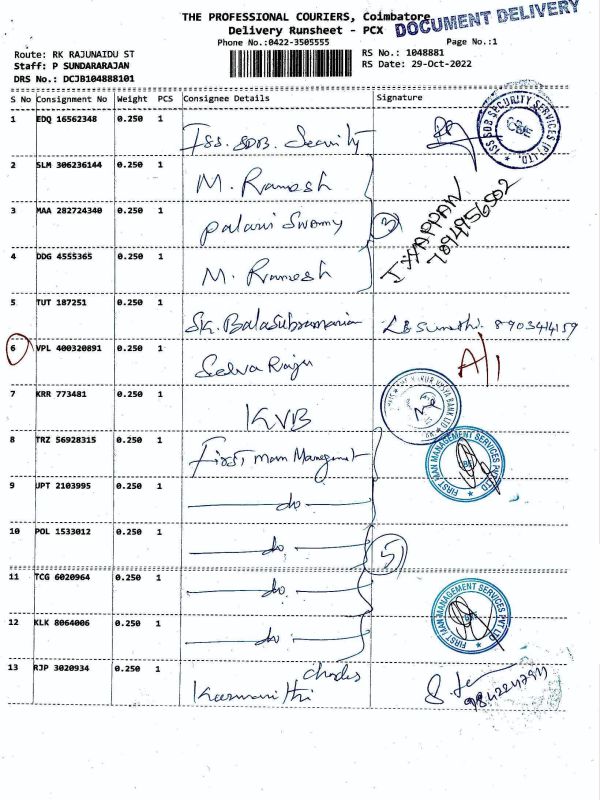 THE PROFESSIONAL COURIERS, Coimbatore
DOCUMENT DELIVERY
Delivery Runsheet - PCX
Phone No.:0422-3505555
Page No.:1
Route: RK RAJUNAIDU ST
RS No.: 1048881
Staff: P SUNDARARAJAN
RS Date: 29-Oct-2022
DRS No.: DCJB104888101
S No Consignment No Weight PCS Consignee Details Signature
1 EDQ 16562348 0.250 1
Iss. SDB. Security
ISS SDB SECURITY SERVICES (P) LTD. CBE
2 SLM 306236144 0.250 1
M. Ramesh
3 MAA 282724340 0.250 1
Palani Swamy
3
4 DDG 4555365 0.250 1
M. Ramesh
5 TUT 187251 0.250 1
Sk. Balasubramanian
8903414159
6 VPL 400320891 0.250 1
Selva Raju
A/1
7 KRR 773481 0.250 1
KVB
8 TRZ 56928315 0.250 1
First Man Management
FIRST MAN MANAGEMENT SERVICES PVT LTD CBE
9 JPT 2103995 0.250 1
do
10 POL 1533012 0.250 1
do
5
11 TCG 6020964 0.250 1
do
12 KLK 8064006 0.250 1
do
FIRST MAN MANAGEMENT SERVICES PVT LTD CBE
13 RJP 3020934 0.250 1